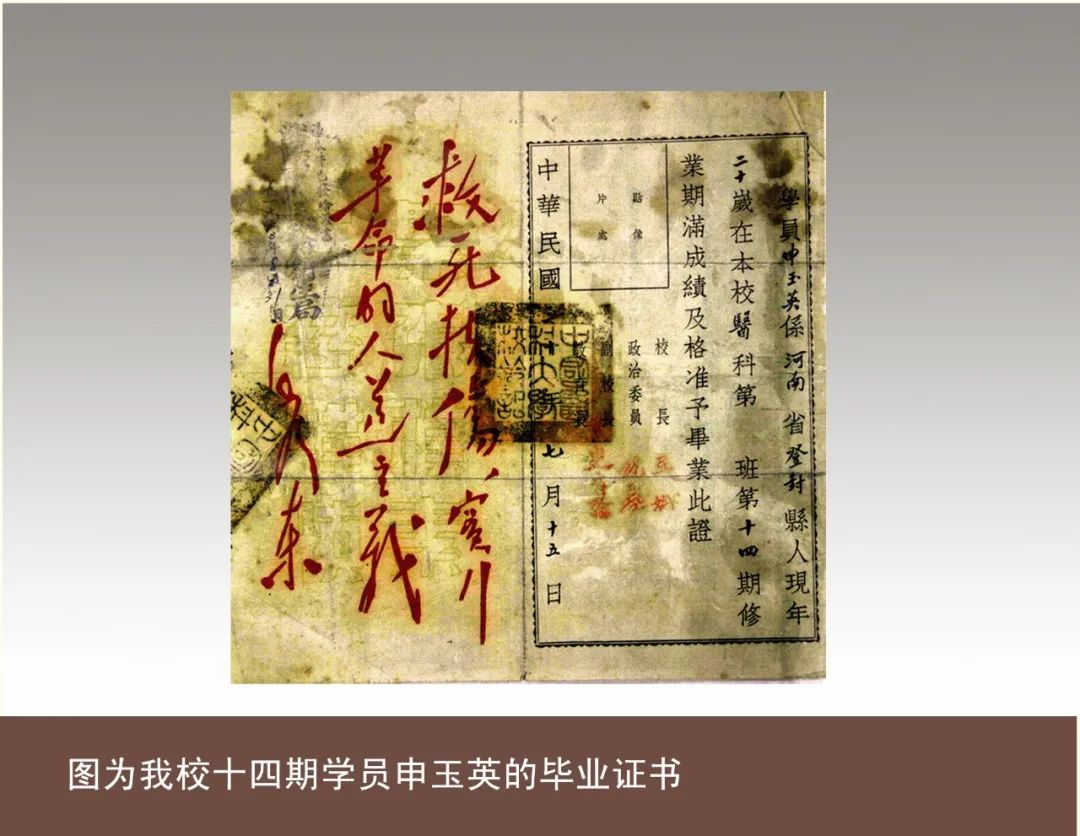 學員申玉英係河南省登封縣人現年
二十歲在本校醫科第 班第十四期修
業期滿成績及格准予畢業此證
貼像
片處
校長
政治委員
副校長
教育長
中華民國
七月十五日
救死扶傷、實行
革命的人道主義
毛澤東
图为我校十四期学员申玉英的毕业证书